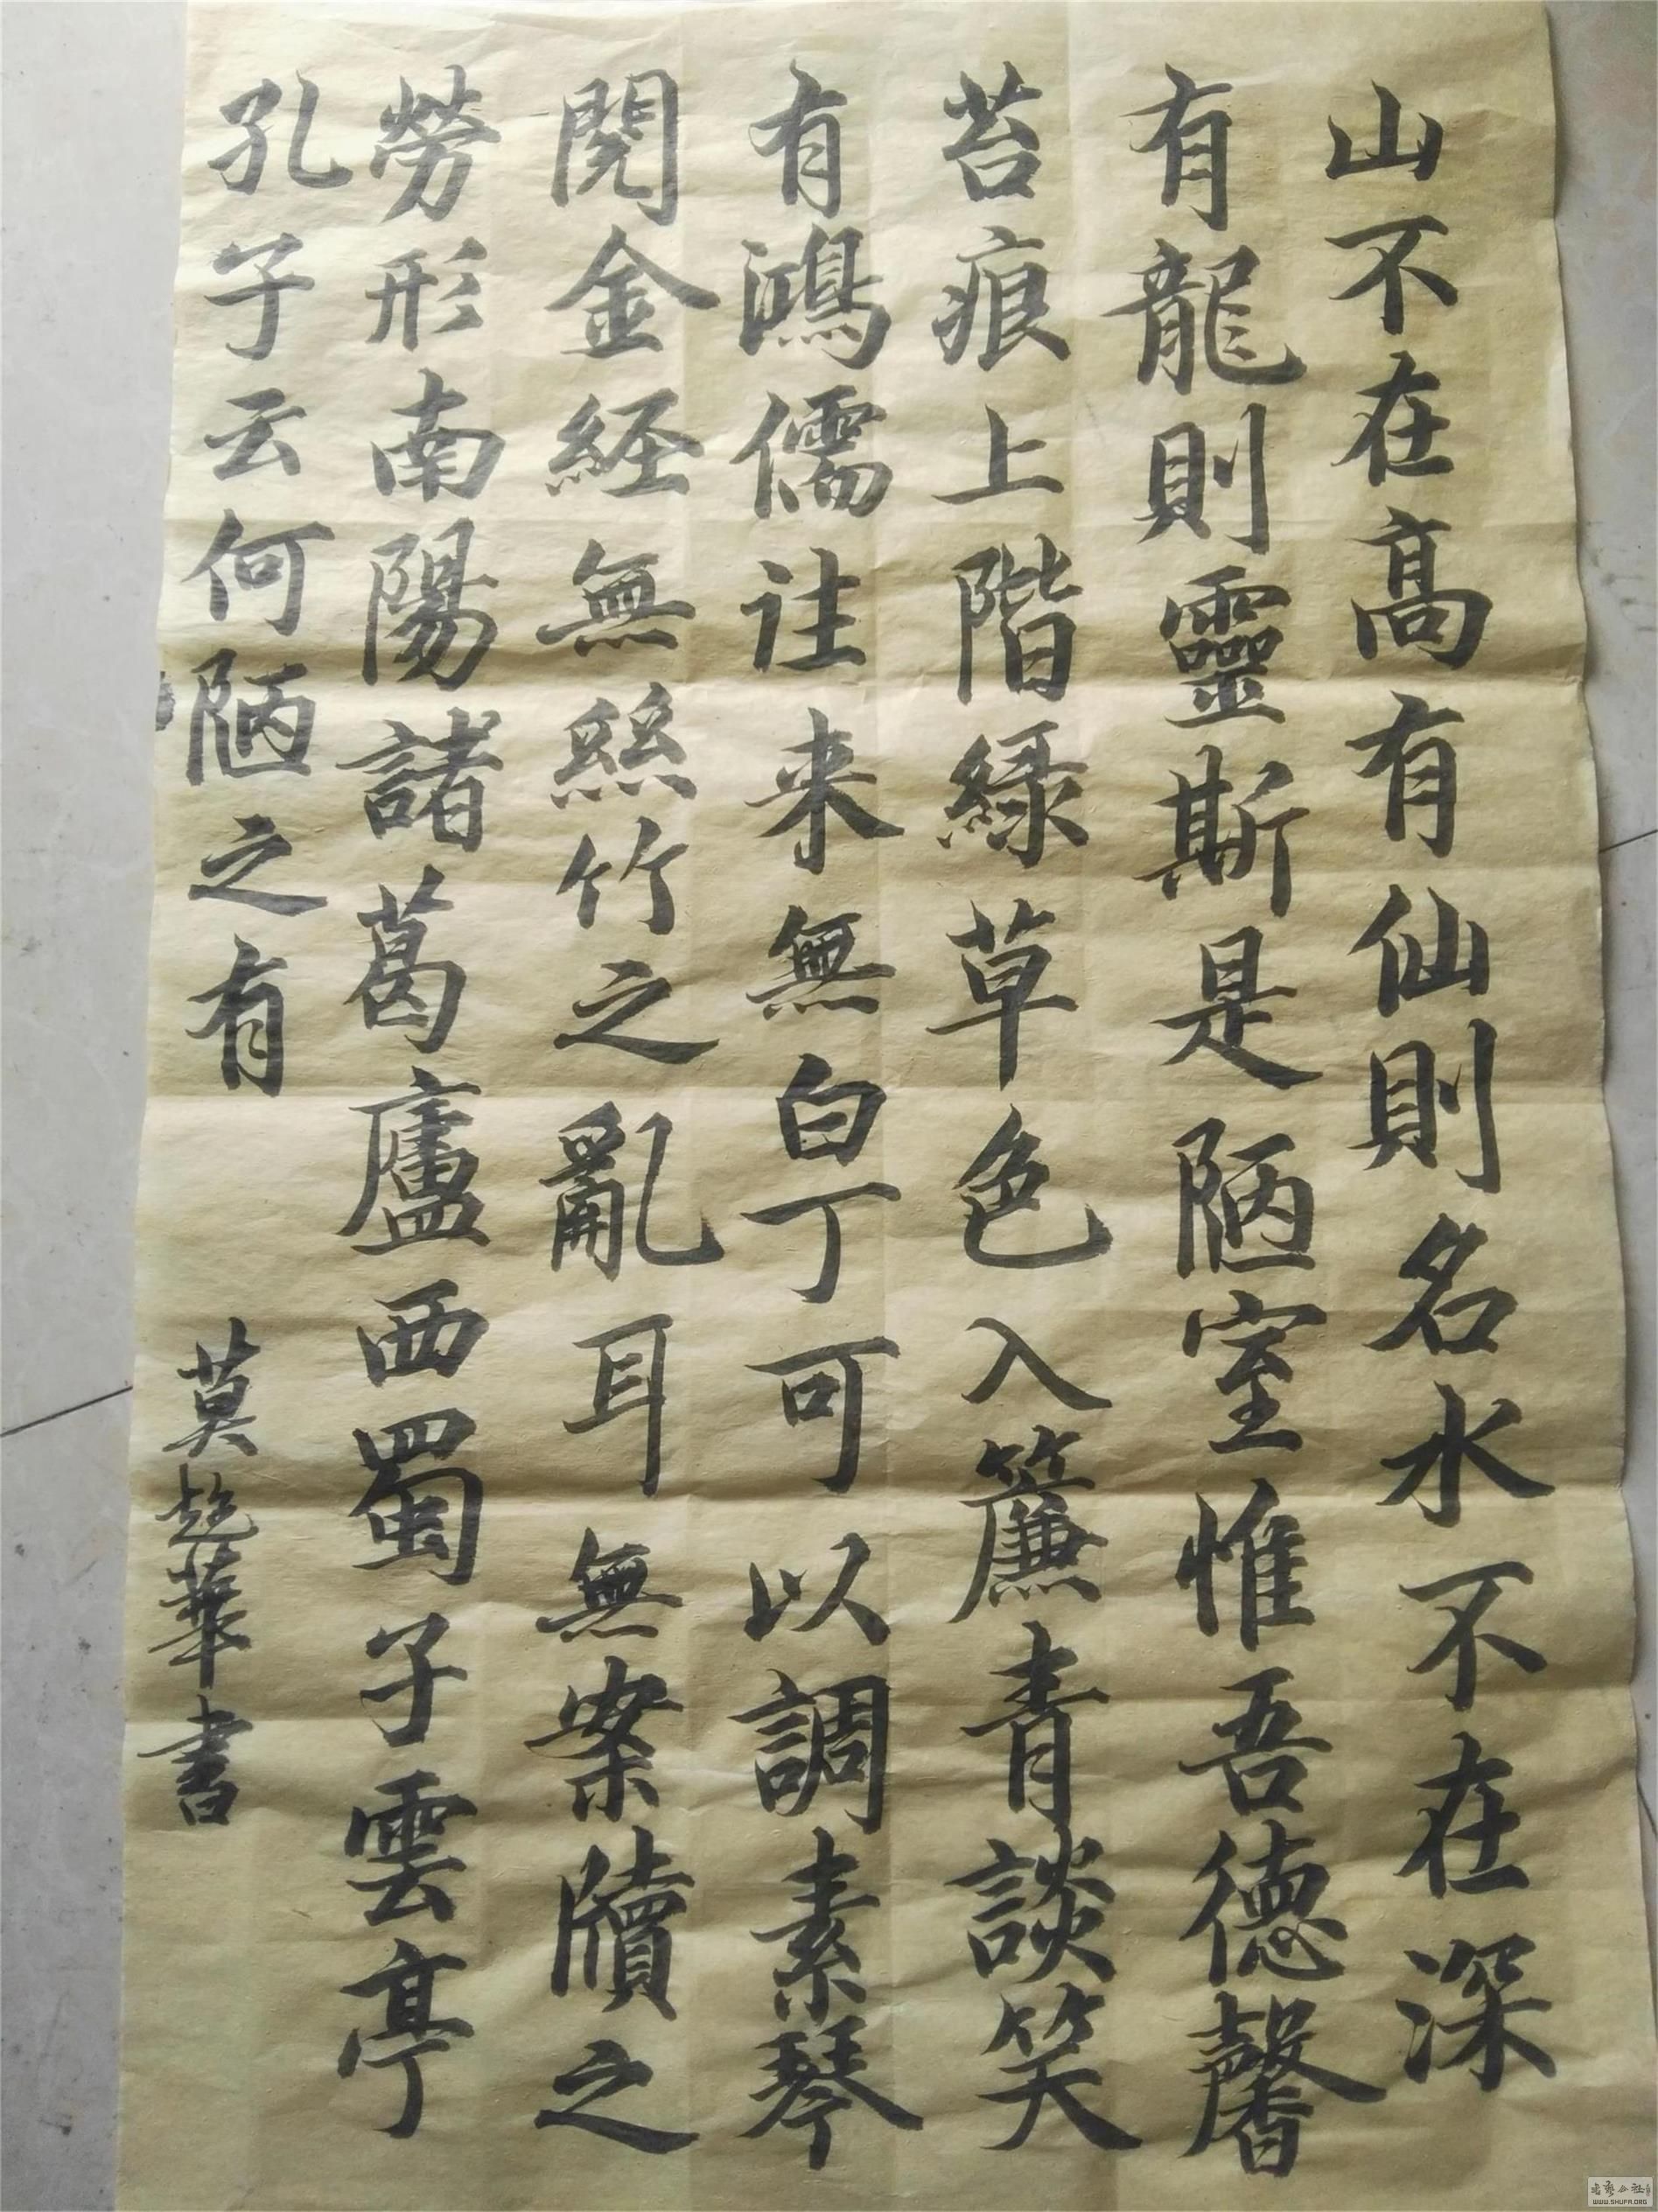 山不在高有仙則名水不在深
有龍則靈斯是陋室惟吾德馨
苔痕上階緑草色入簾青談笑
有鴻儒往来無白丁可以調素琴
閱金経無絲竹之亂耳無案牘之
勞形南陽諸葛廬西蜀子雲亭
孔子云何陋之有
莫超華書
WWW.SHUFA.ORG